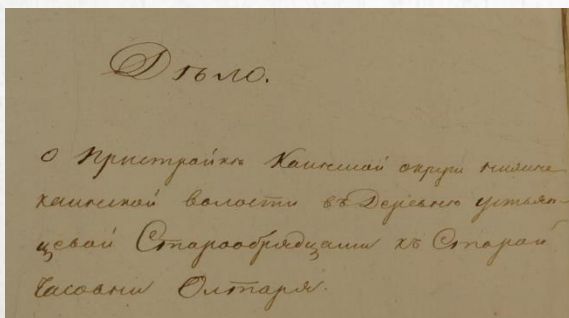 Дѣло.
О Пристройкѣ Каинской округи нижне
каинской волости въ Деревню устьян-
цевой Старообрядцами къ Старой
Часовни Олтаря.